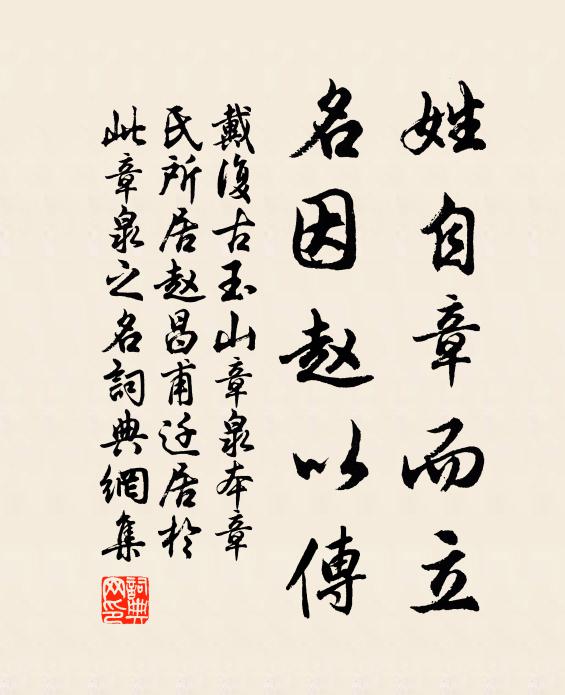 姓自章而立
名因赵以傳
戴復古玉山章泉本章
民所居赵昌甫迁居於
此章泉之名詞典網集
詞典
网印